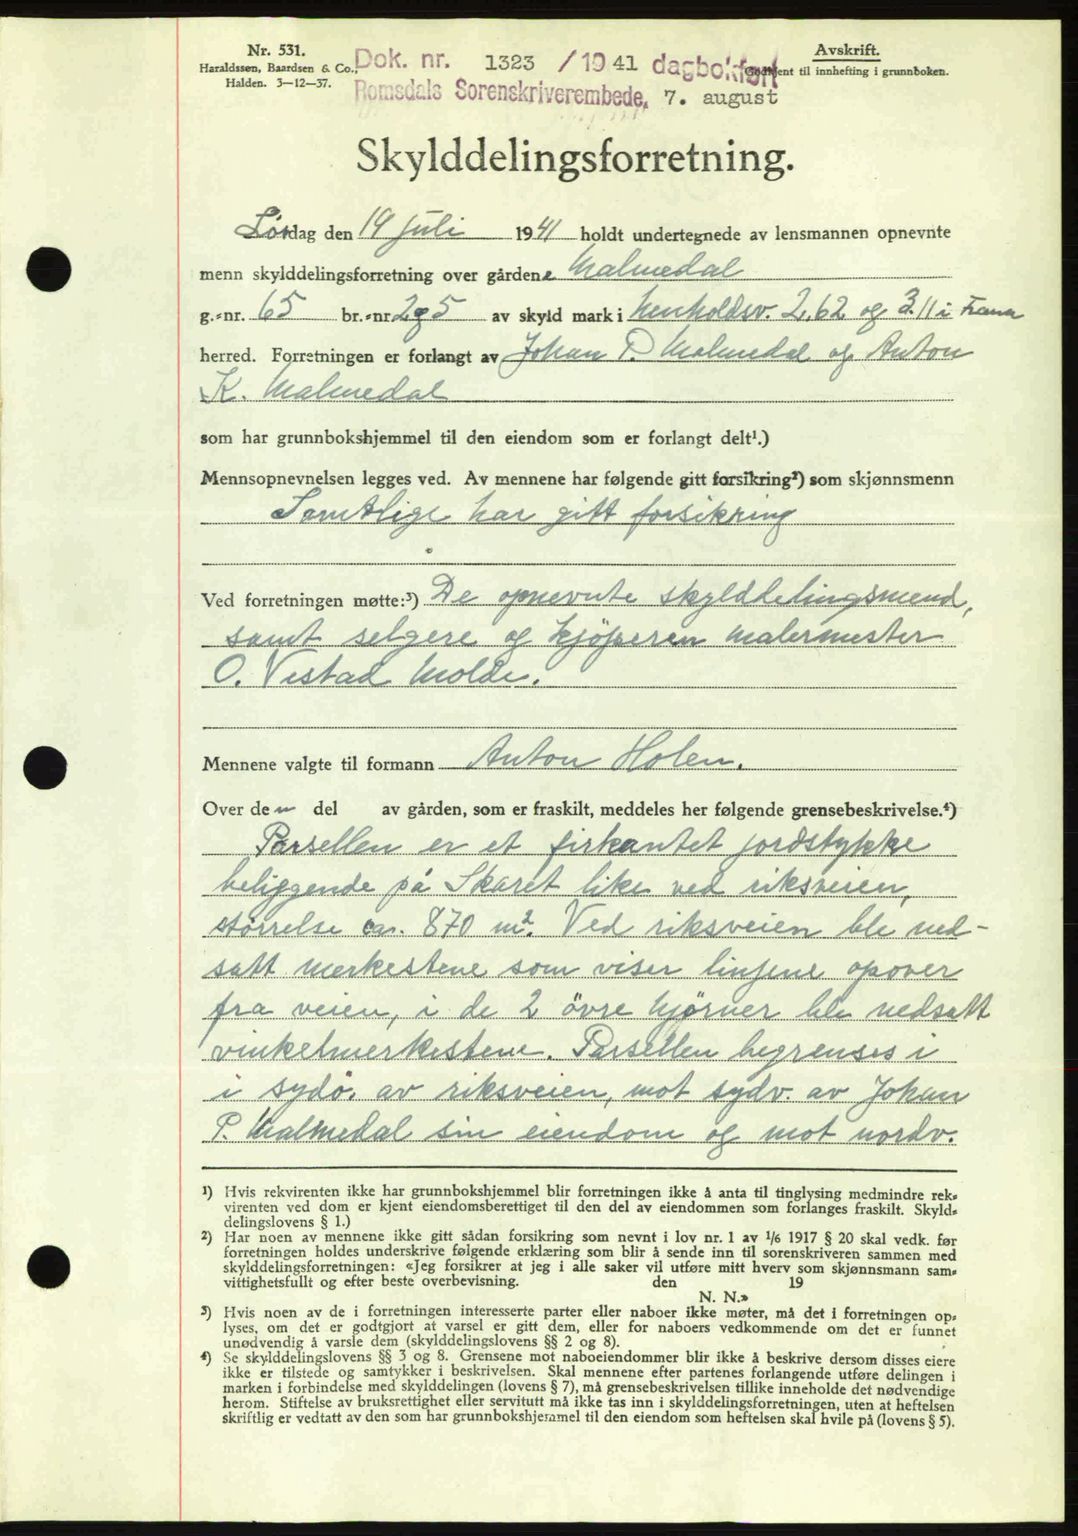 Nr. 531.
Haraldssen, Baardsen & Co.,
Halden. 3—12—37.
Dok. nr. 1323 /1941 dagbokført
Romsdals Sorenskriverembede, 7. august
Avskrift.
Godkjent til innhefting i grunnboken.
Skylddelingsforretning.
Lørdag den 19 juli 1941 holdt undertegnede av lensmannen opnevnte
menn skylddelingsforretning over gårdene Malmedal
g.-nr. 65 br.-nr. 2 og 5 av skyld mark i henholdsv. 2,62 og 3.11 i Fræna
herred. Forretningen er forlangt av Johan P. Malmedal og Anton
K. Malmedal
som har grunnbokshjemmel til den eiendom som er forlangt delt¹.)
Mennsopnevnelsen legges ved. Av mennene har følgende gitt forsikring²) som skjønnsmenn
Samtlige har gitt forsikring
Ved forretningen møtte:³) De opnevnte skylddelingsmend,
samt selgere og kjöperen malermester
O. Vestad Molde.
Mennene valgte til formann Anton Holen.
Over den del av gården, som er fraskilt, meddeles her følgende grensebeskrivelse.⁴)
Parsellen er et firkantet jordstykke
beliggende på Skaret like ved riksveien,
størrelse ca. 870 m². Ved riksveien ble ned-
satt merkestene som viser linjene opover
fra veien, i de 2 övre hjørner ble nedsatt
vinkelmerkestene. Parsellen begrenses i
i sydö. av riksveien, mot sydv. av Johan
P. Malmedal sin eiendom og mot nordv.
¹) Hvis rekvirenten ikke har grunnbokshjemmel blir forretningen ikke å anta til tinglysing medmindre rek-
virenten ved dom er kjent eiendomsberettiget til den del av eiendommen som forlanges fraskilt. Skyld-
delingslovens § 1.)
²) Har noen av mennene ikke gitt sådan forsikring som nevnt i lov nr. 1 av 1/6 1917 § 20 skal vedk. før
forretningen holdes underskrive følgende erklæring som blir å sende inn til sorenskriveren sammen med
skylddelingsforretningen: «Jeg forsikrer at jeg i alle saker vil utføre mitt hverv som skjønnsmann sam-
vittighetsfullt og efter beste overbevisning. den 19
N. N.»
³) Hvis noen av de i forretningen interesserte parter eller naboer ikke møter, må det i forretningen op-
lyses, om det er godtgjort at varsel er gitt dem, eller for naboers vedkommende om det er funnet
unødvendig å varsle dem (skylddelingslovens §§ 2 og 8).
⁴) Se skylddelingslovens §§ 3 og 8. Grensene mot naboeiendommer blir ikke å beskrive dersom disses eiere
ikke er tilstede og samtykker i beskrivelsen. Skal mennene efter partenes forlangende utføre delingen i
marken i forbindelse med skylddelingen (lovens § 7), må grensebeskrivelsen tillike inneholde det nødvendige
herom. Stiftelse av bruksrettighet eller servitutt må ikke tas inn i skylddelingsforretningen, uten at heftelsen
skriftlig er vedtatt av den som har grunnbokshjemmel til den eiendom som heftelsen skal hvile på (lovens § 5).